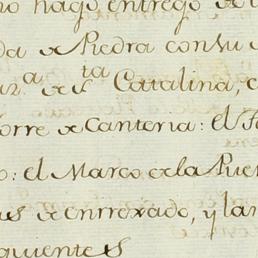 no hago entrego de
da de Piedra con su
a de sta Cattalina, c
orre de Canteria: el
o: el Marco de la Pue
de enrrexado, y las
iguientes